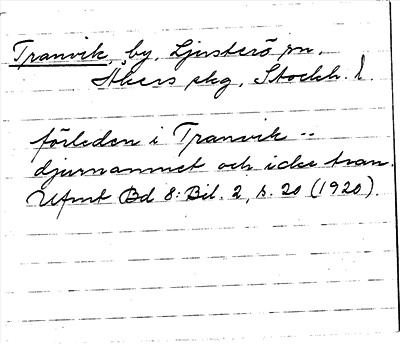 Tranvik, by, Ljusterö sn,
Åkers skg, Stockh. l.
förleden i Tranvik --
djurnamnet och icke tran.
Ufmt Bd 8: Bil. 2, s. 20 (1920).